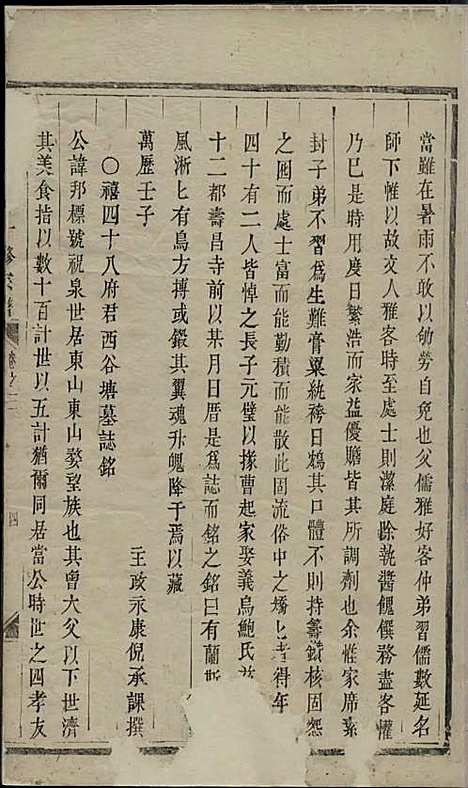 當雖在暑雨不敢以劬勞自免也父儒雅好客仲弟習儒數延名
師下帷以故文人雅客時至處士則潔庭除執醬餽饌務盡客懽
乃已是時用度日繁浩而家益優贍皆其所調劑也余惟家席素
封子弟不習為生難膏粱紈袴日鴆其口體不則持籌鑽核固怨
之囮而處士富而能勤積而能散此固流俗中之矯匕者得年
四十有二人皆悼之長子元璧以掾曹起家娶義烏鮑氏
十二都壽昌寺前以某月日厝是為誌而銘之銘曰有蘭斯
風淅匕有鳥方搏或鎩其翼魂升魄降于焉以藏
萬歷壬子
王政永康倪承課撰
○禧四十八府君西谷塘墓誌銘
公諱邦標號祝泉世居東山東山婺望族也其曾大父以下世濟
其美食指以數十百計世以五計猶爾同居當公時世之四孝友
修宗譜
卷之
四